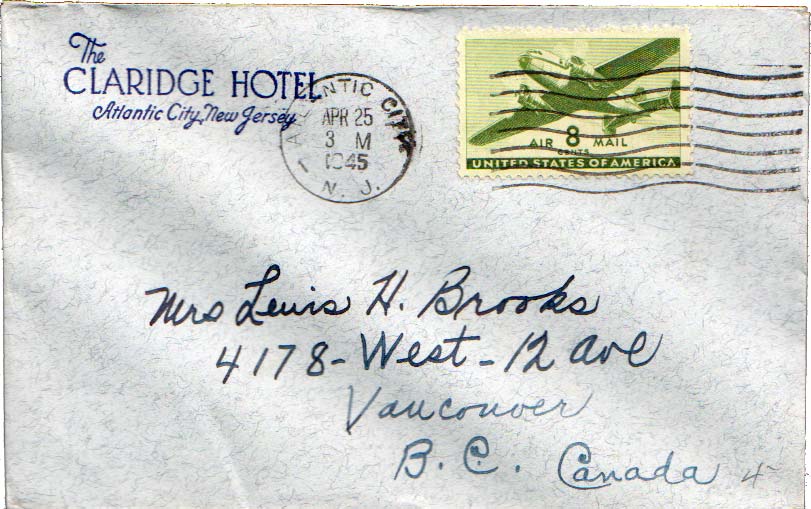 The
CLARIDGE HOTEL
Atlantic City, New Jersey
ATLANTIC CITY
APR 25
3 M
1945
N. J.
AIR 8 MAIL
CENTS
UNITED STATES OF AMERICA
Mrs Lewis H. Brooks
4178-West-12 ave
Vancouver
B. C. Canada 4